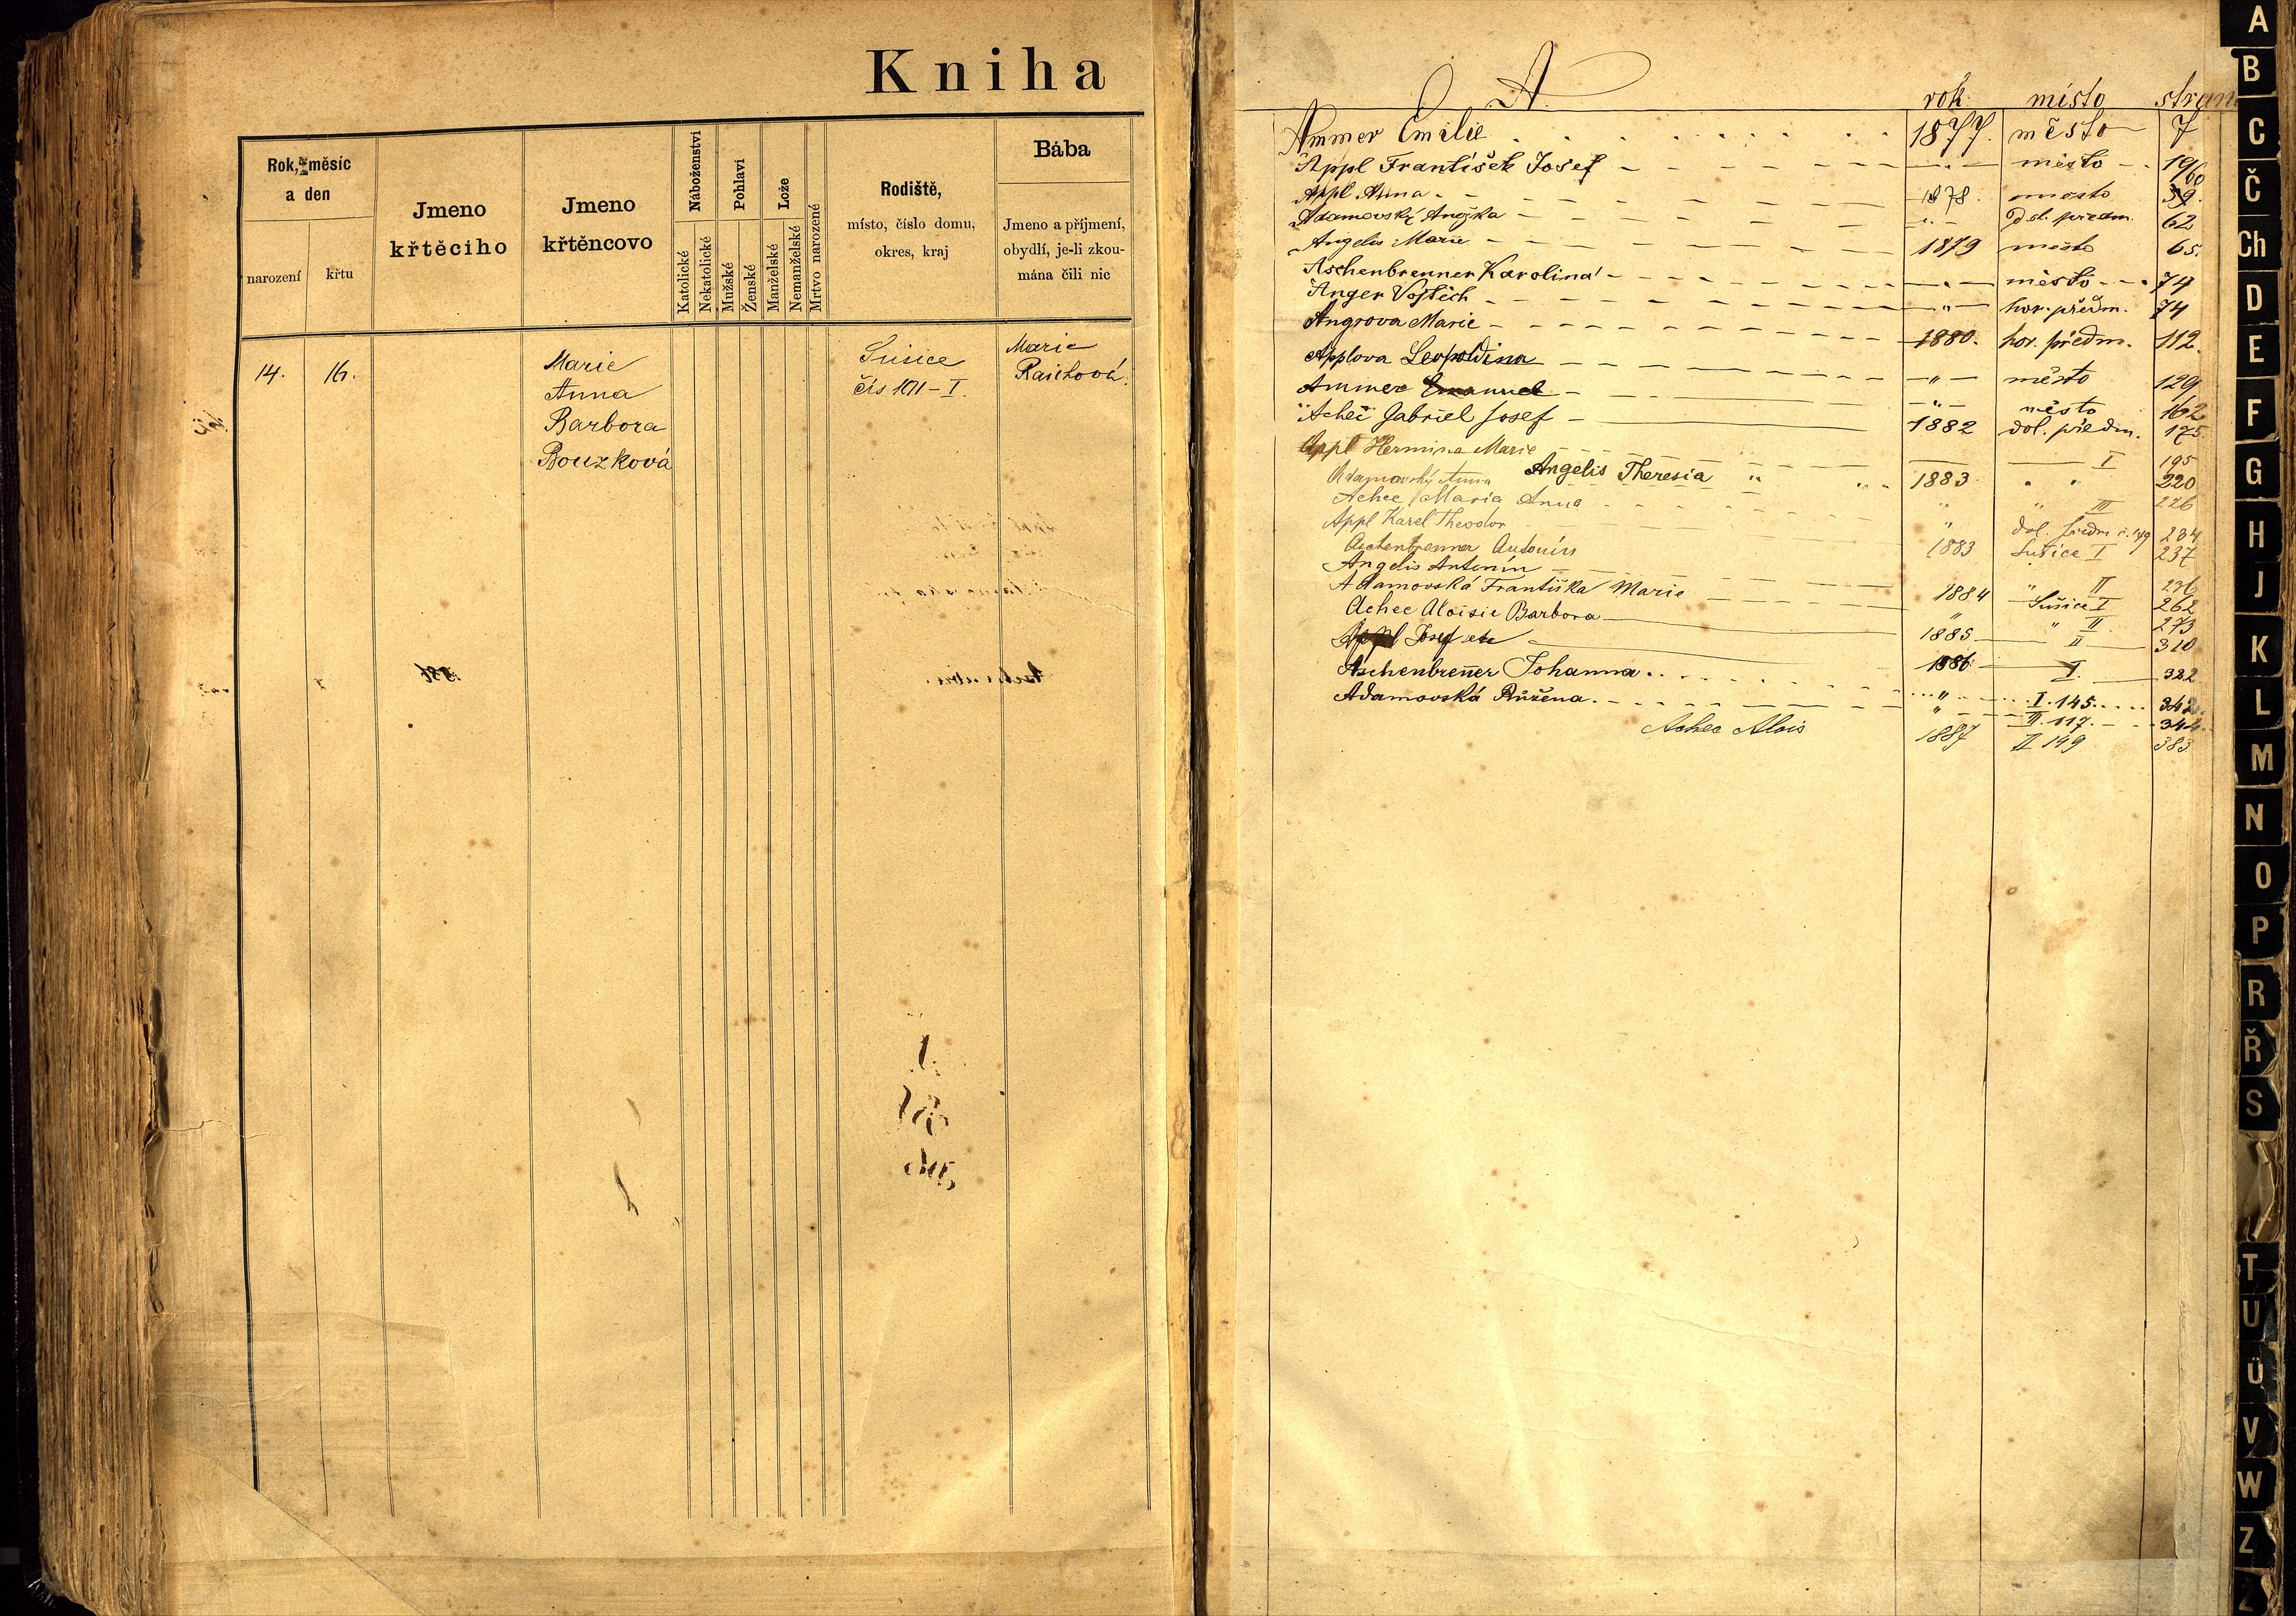 Kniha
Rok, měsíc
a den
narození
křtu
Jmeno
křtěcího
Jmeno
křtěncovo
Náboženství
Katolické
Nekatolické
Pohlaví
Mužské
Ženské
Lože
Manželské
Nemanželské
Mrtvo narozené
Rodiště,
místo, číslo domu,
okres, kraj
Bába
Jmeno a příjmení,
obydlí, je-li zkou-
mána čili nic
14. 16.
Marie
Anna
Barbora
Bouzková
Sušice
čís 101-I.
Marie
Raichová.
A. rok místo
Ammer Emilie 1877. město 7
Appl František Josef město 19
Appl Anna 1878. město
Adamovský Anežka dol. předm. 62
Angelis Marie 1879 město 65.
Aschenbrenner Karolina město 74
Anger Vojtěch " hor. předm. 74
Angrova Marie 1880. hor. předm. 112.
Applova Leopoldina " město 129
Ammer Emanuel " město 162
Achec Gabriel Josef 1882 dol. předm. 175
Appl Hermina Marie I 195
Adamovský Anna Angelis Theresia " 1883 " " 220
Achec Maria Anna " " III 226
Appl Karel Theodor " dol. předm. 234
Aschenbrenner Antonín 1883 Sušice I 237
Angelis Antonín " II
Adamovská Františka Marie 1884 Sušice I 262
Achec Aloisie Barbora " " II 273
Appl Josef 1885 II 310
1886 I. 322
Aschenbrenner Johanna " I. 145 342
Adamovská Růžena " II. 117. 344
Achec Alois 1887 II 149 383
A
B
C
Č
Ch
D
E
F
G
H
J
K
L
M
N
O
P
R
Ř
S
T
U
Ú
V
W
Z